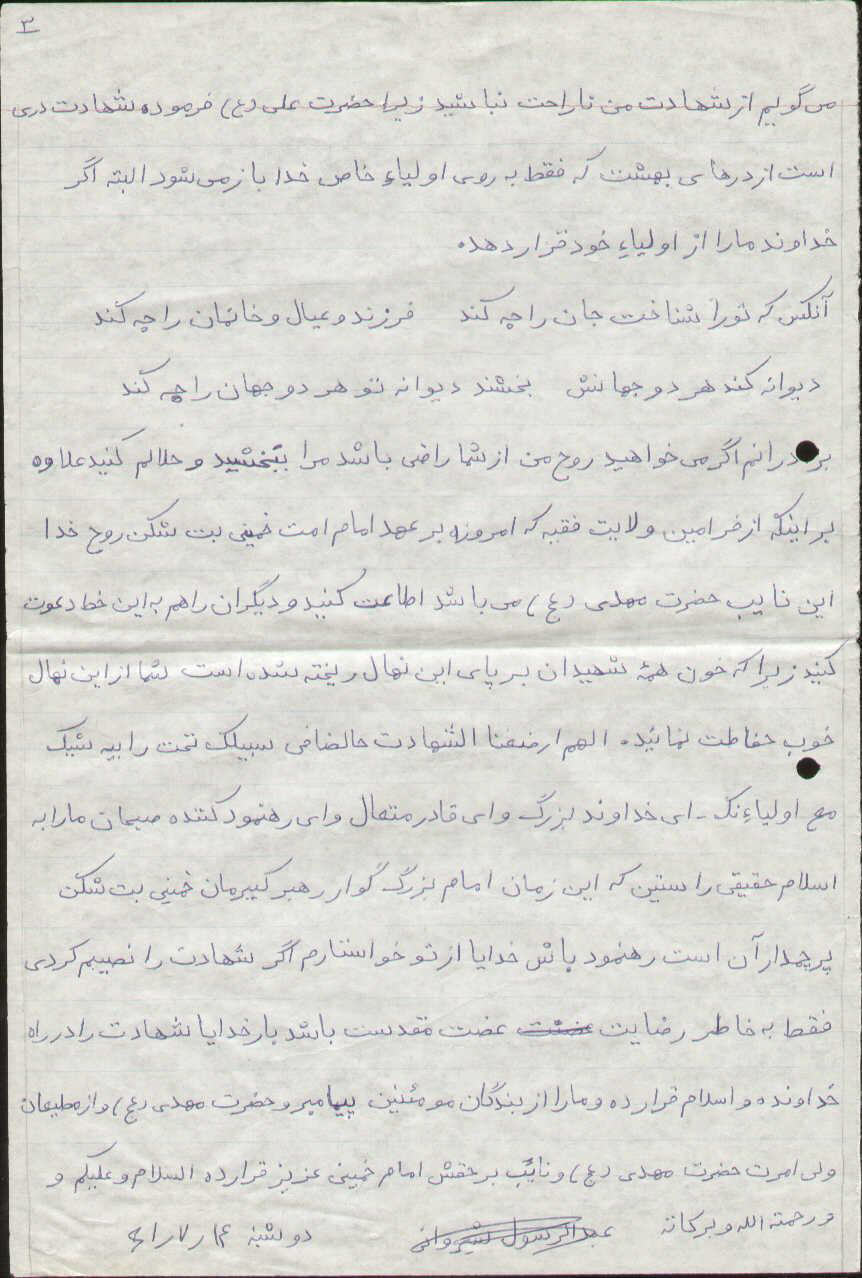 ۳
می گویم از شهادت من ناراحت نباشید زیرا حضرت علی (ع) فرموده شهادت دری
است از درهای بهشت که فقط به روی اولیاءِ خاص خدا باز می شود البته اگر
خداوند ما را از اولیاءِ خود قرار دهد.
آنکس که تو را شناخت جان را چه کند فرزند و عیال و خانمان را چه کند
دیوانه کند هر دو جهانش بخشند دیوانه تو هر دو جهان را چه کند
برادرانم اگر می خواهید روح من از شما راضی باشد مرا ببخشید و حلالم کنید علاوه
بر اینکه از فرامین ولایت فقیه که امروزه بر عهد امام امت خمینی بت شکن روح خدا
این نایب حضرت مهدی (عج) می باشد اطاعت کنید و دیگران را هم به این خط دعوت
کنید زیرا که خون همهٔ شهیدان بر پای این نهال ریخته شده است شما از این نهال
خوب حفاظت نمائید. الهم ارضقنا الشهادت خالضا فی سبیلک تحت رابیه
مع اولیاءِنک - ای خداوند بزرگ و ای قادر متعال و ای رهنمود کننده ما را به
اسلام حقیقی راستین که این زمان امام بزرگ گوار رهبر کبیرمان خمینی بت شکن
پرچمدار آن است رهنمود باش خدایا از تو خواستارم اگر شهادت را نصیبم کردی
فقط به خاطر رضایت عضت مقدست باشد بار خدایا شهادت را در راه
خداونده و اسلام قرار ده و ما را از بندگان مومئنین پیامبر و حضرت مهدی (عج) و از مطیعان
ولی امرت حضرت مهدی (عج) و نائب بر حقش امام خمینی عزیز قرار ده السلام و علیکم و
و رحمته الله و برکاته عبدالرسول شیروانی دوشنبه ۶۱/۷/۱۴